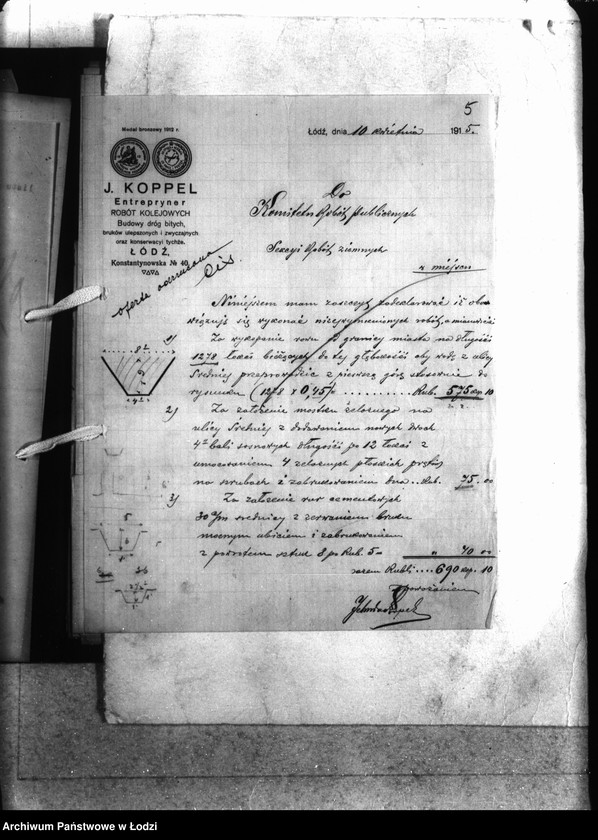 5
Łódź, dnia 10 kwietnia 1915.
Medal bronzowy 1912 r.
J. KOPPEL
Entrepryner
ROBÓT KOLEJOWYCH
Budowy dróg bitych,
bruków ulepszonych i zwyczajnych
oraz konserwacyi tychże.
ŁÓDŹ,
Konstantynowska № 40.
Do
Komitetu Robót Publicznych
Sekcyi Robót ziemnych
w miejscu
oferta
Niniejszem mam zaszczyt zadeklarować iż obo
wiązuję się wykonać niżej wymienionych robót, a mianowicie
1) Za wykopanie rowu od granicy miasta na długości
1278 łokci bieżących do tej głębokości aby wodę z ulicy
Średniej przeprowadzić z pierwszą górą stosownie do
rysunku (1278 x 0,45) .......... Rub. 575 kop 10
2) Za założenie mostku żelaznego na
ulicy Średniej z dodawaniem nowych dwóch
4" bali sosnowych długości po 12 łokci z
umocowaniem 4 żelaznych płaskich
na szrubach i zabrukowaniem dna .. Rub. 75.00
3) Za założenie rur cementowych
30 c/m średnicy z zerwaniem bruku
mocnym ubiciem i zabrukowaniem
z powrotem sztuk 8 po Rub. 5- " 40 00
razem Rubli .... 690 kop. 10
Z poważaniem
Archiwum Państwowe w Łodzi